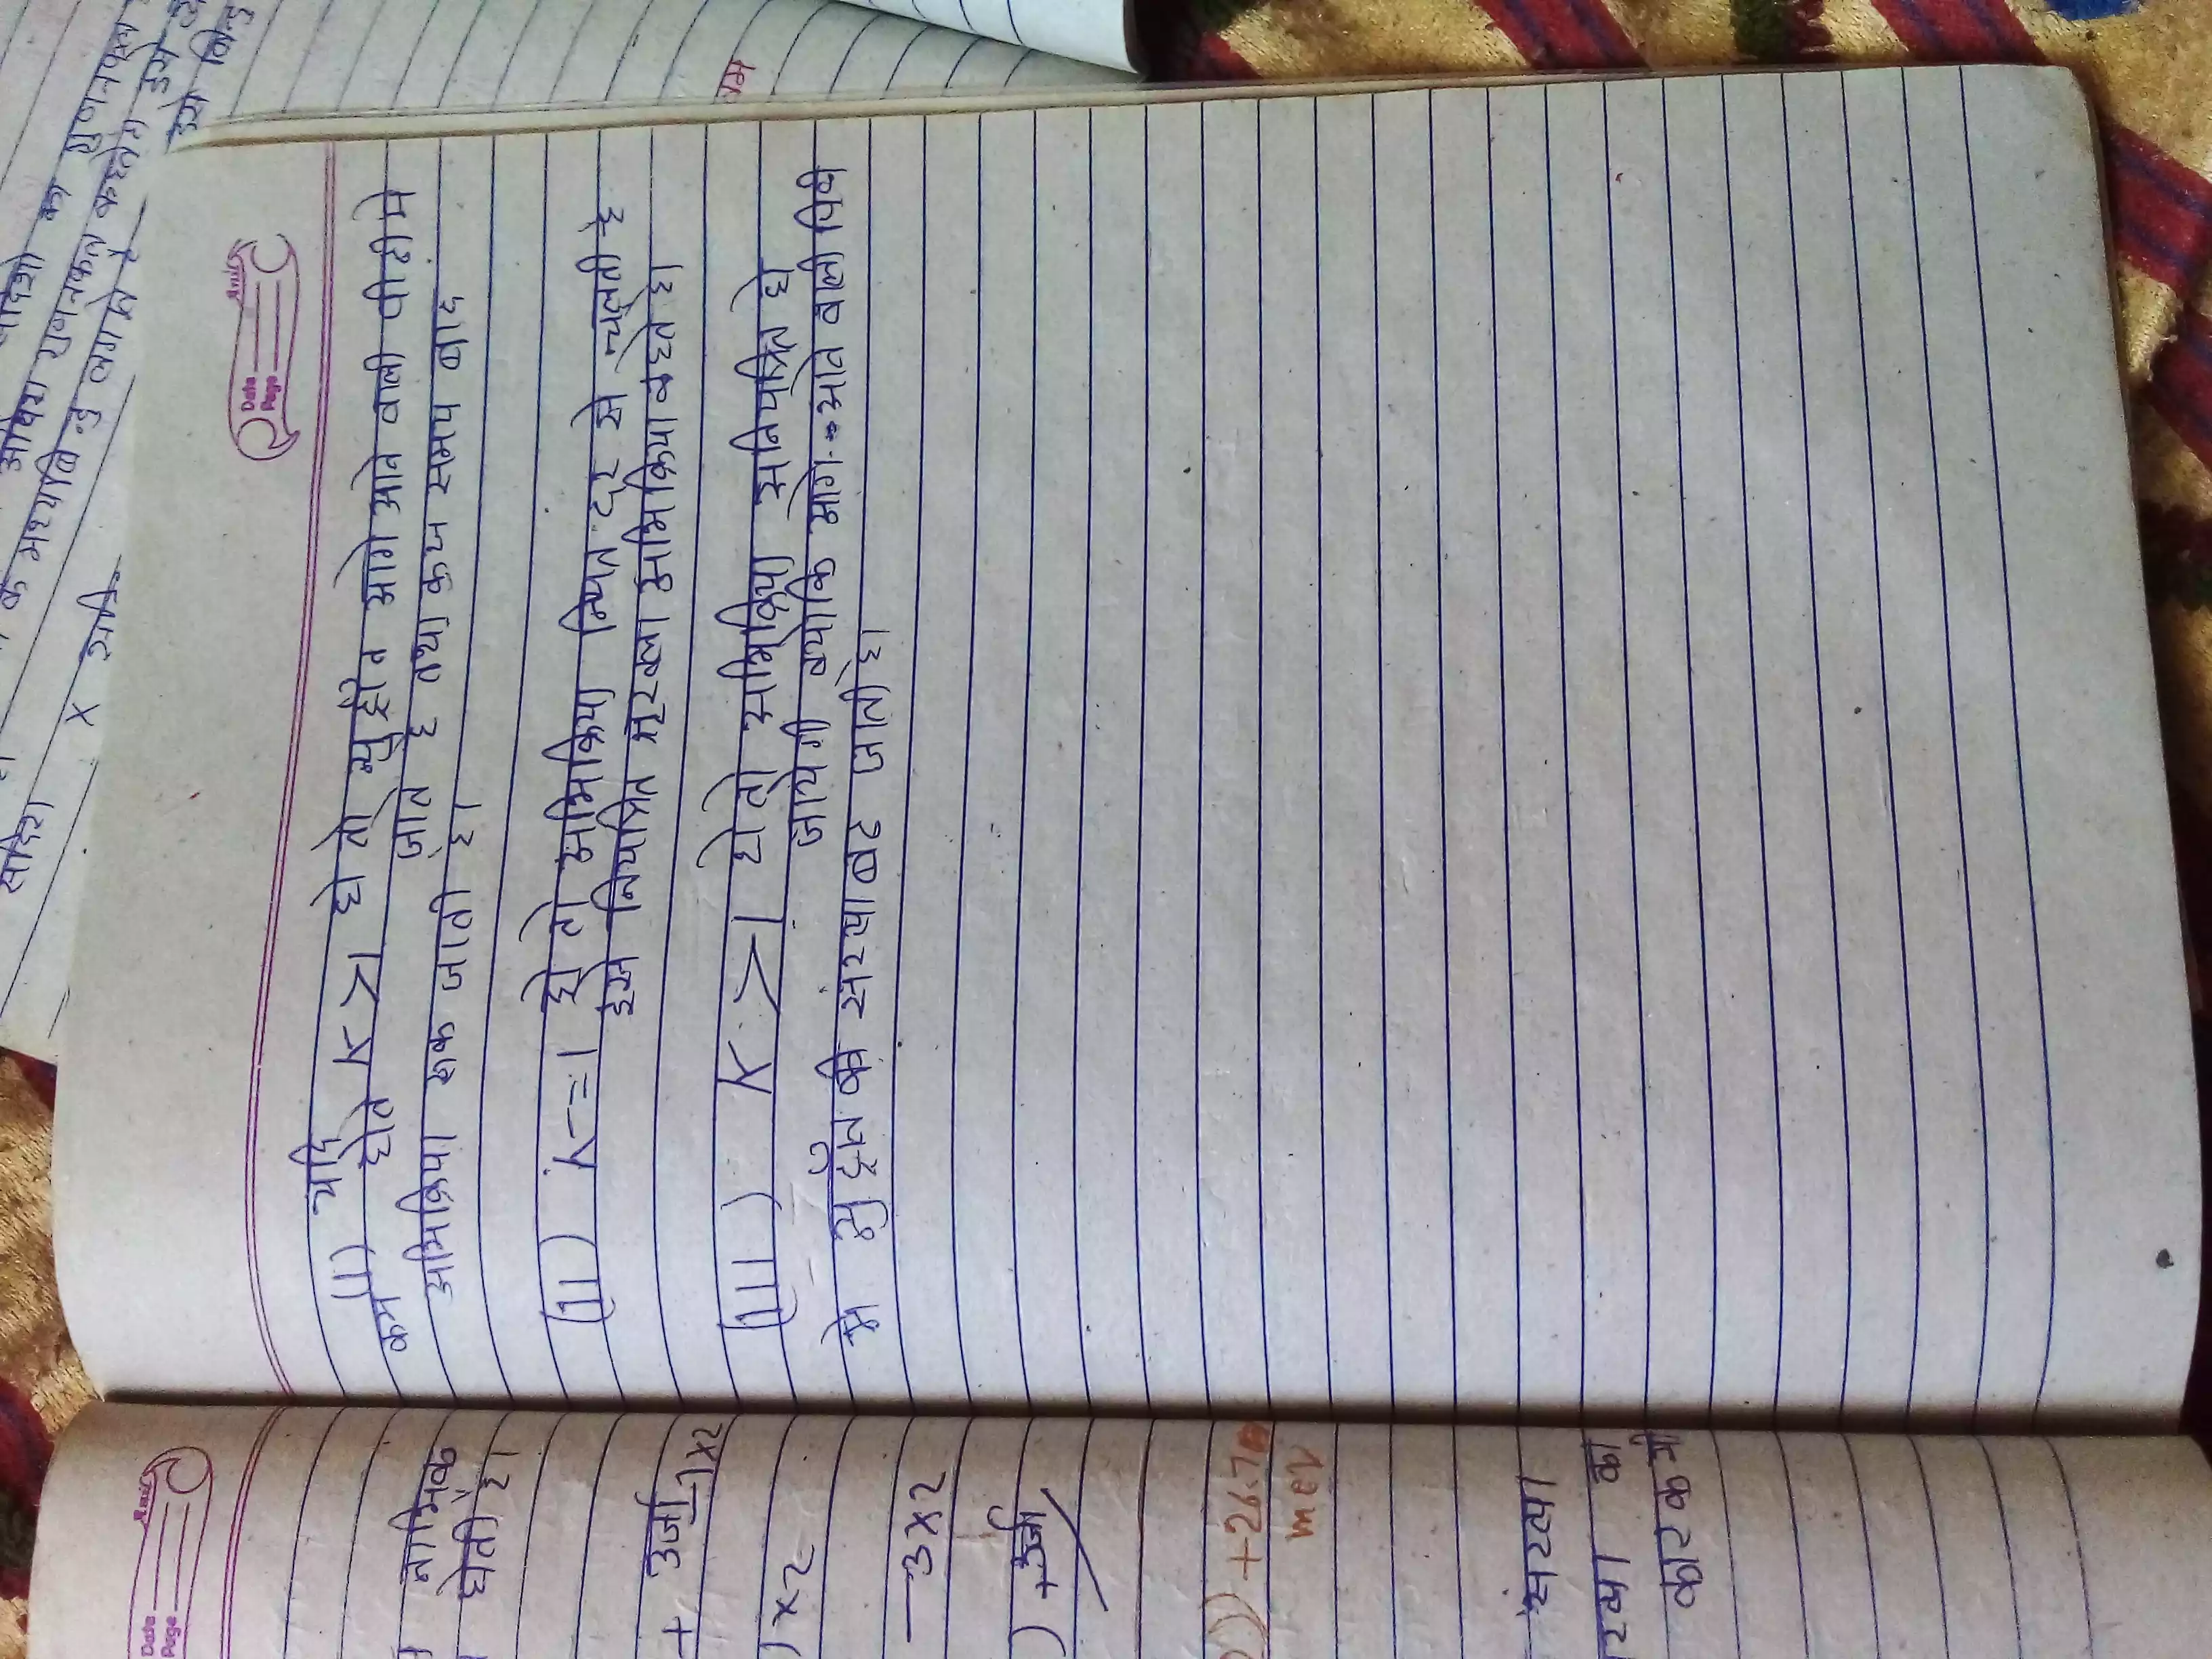 Date
Page
(I) यदि K > 1 हो तो न्युट्रॉन आगे आने वाली पीढी मे
कम होते जाते है तथा कुछ समय बाद
अभिक्रिया रुक जाती है।
(II) K = 1 हो तो अभिक्रिया नियत दर से चलती है
इसे नियंत्रित श्रृंखला अभिक्रिया कहते है।
(III) K > 1 हो तो अभिक्रिया अनियंत्रित हो
जायेगी क्योकि आगे आने वाली पिढी
मे न्युट्रॉन की संख्या बढ जाती है।
Date
Page
नाभिक
होती है।
+ उर्जा
1x2
)x2
3x2
) + उर्जा
+26.7
mev
संख्या
संख्या का
कारक
के मध्यबिन्दु
x सदि
गुणनफल कहलाता